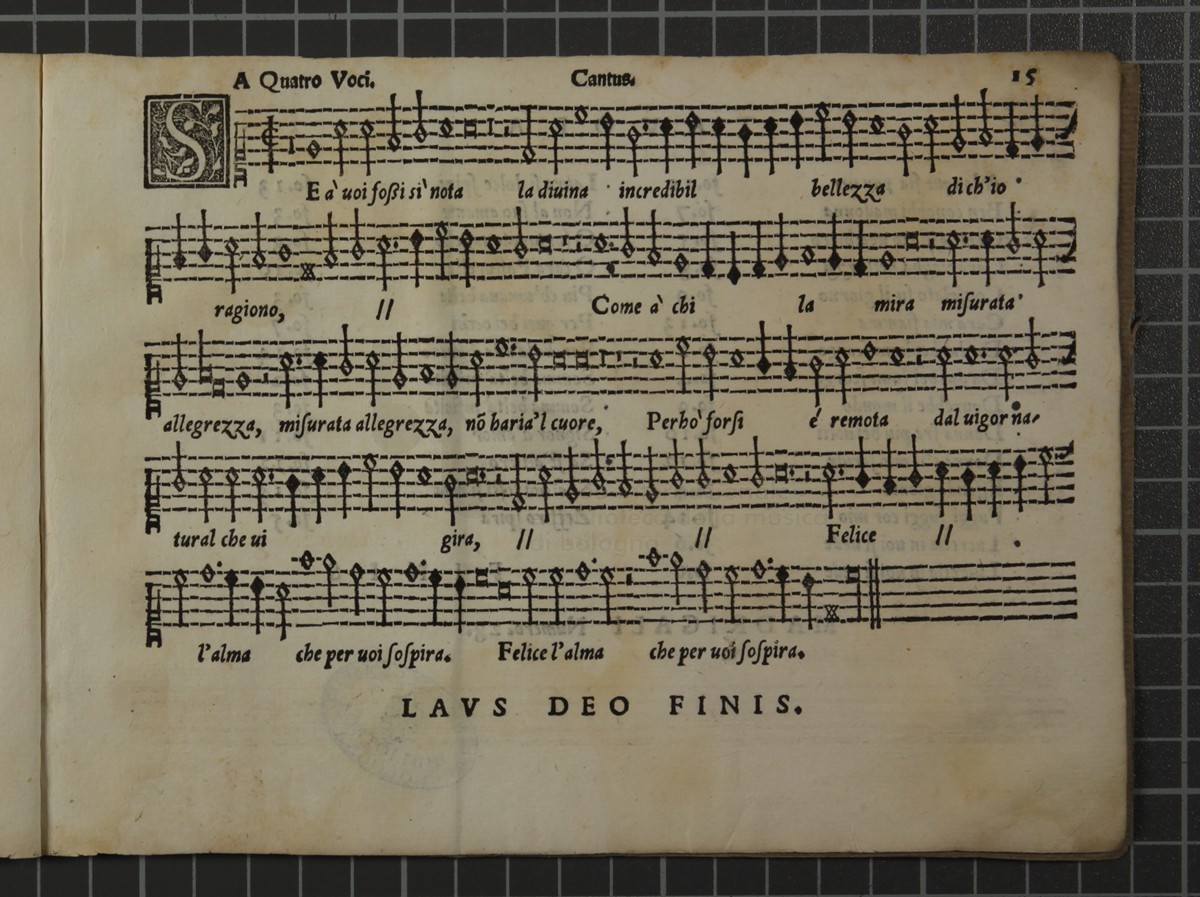 A Quatro Voci. Cantus. 15
SE a' uoi foßi si' nota la diuina incredibil bellezza di ch'io
ragiono, // Come a' chi la mira misurata
allegrezza, misurata allegrezza, nõ haria'l cuore, Perho' forsi é remota dal uigor na-
tural che ui gira, // // Felice //
l'alma che per uoi sospira. Felice l'alma che per uoi sospira.
LAVS DEO FINIS.